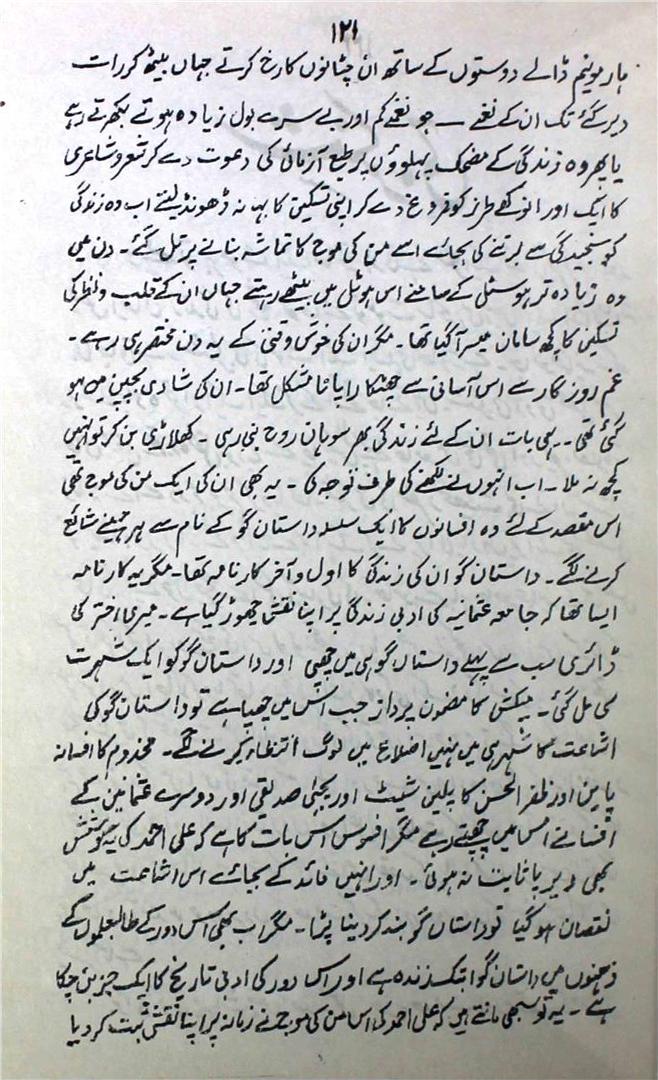 ۱۲۶
ہارمونیم ڈالے دوستوں کے ساتھ ان چٹانوں کا رخ کرتے جہاں بیٹھ کر رات
دیر گئے تک ان کے نغمے — جو نغمے کم اور بے سرے بول زیادہ ہوتے بکھرتے رہے
یا پھر وہ زندگی کے مضحک پہلوؤں پر طبع آزمائی کی دعوت دے کر شعر و شاعری
کا ایک اور انوکھے طرز کو فروغ دے کر اپنی تسکین کا بہانہ ڈھونڈ لیتے اب وہ زندگی
کو سنجیدگی سے برتنے کی بجائے اسے من کی موج کا تماشہ بنانے پر تل گئے۔ دن میں
وہ زیادہ تر ہوسٹل کے سامنے اس ہوٹل میں بیٹھے رہتے جہاں ان کے قلب و نظر کی
تسکین کا کچھ سامان میسر آگیا تھا۔ مگر ان کی خوش وقتی کے یہ دن مختصر ہی رہے۔
غم روزگار سے اس آسانی سے چھٹکارا پانا مشکل تھا۔ ان کی شادی بچپن میں ہو
گئی تھی۔ یہی بات ان کے لئے زندگی بھر سوہان روح بنی رہی۔ کھلاڑی بن کر تو انہیں
کچھ نہ ملا۔ اب انہوں نے لکھنے کی طرف توجہ کی۔ یہ بھی ان کی ایک من کی موج تھی
اس مقصد کے لئے وہ افسانوں کا ایک سلسلہ داستان گو کے نام سے ہر مہینے شائع
کرنے لگے۔ داستان گو ان کی زندگی کا اول و آخر کارنامہ تھا۔ مگر یہ کارنامہ
ایسا تھا کہ جامعہ عثمانیہ کی ادبی زندگی پر اپنا نقش چھوڑ گیا ہے۔ میری اختر کی
ڈائری سب سے پہلے داستاں گو ہی میں چھپی اور داستان گو کو ایک شہرت
سی مل گئی۔ میکش کا مضمون پرداز جب اس میں چھپا ہے تو داستان گو کی
اشاعت کا شہر ہی میں نہیں اضلاع میں لوگ انتظار کرنے لگے۔ مخدوم کا افسانہ
پامین اور ظفر الحسن کا پلین شیٹ اور یحییٰ صدیقی اور دوسرے عثمانین کے
افسانے اس میں چھپتے رہے مگر افسوس اس بات کا ہے کہ علی احمد کی یہ کوشش
بھی دیرپا ثابت نہ ہوئی۔ اور انہیں فائدے کے بجائے اس اشاعت میں
نقصان ہو گیا تو داستاں گو بند کر دینا پڑا۔ مگر اب بھی اس دور کے طالب علموں کے
ذہنوں میں داستان گو ابتک زندہ ہے اور اس دور کی ادبی تاریخ کا ایک جز بن چکا
ہے۔ یہ تو سبھی مانتے ہیں کہ علی احمد کی اس من کی موج نے زمانہ پر اپنا نقش ثبت کر دیا